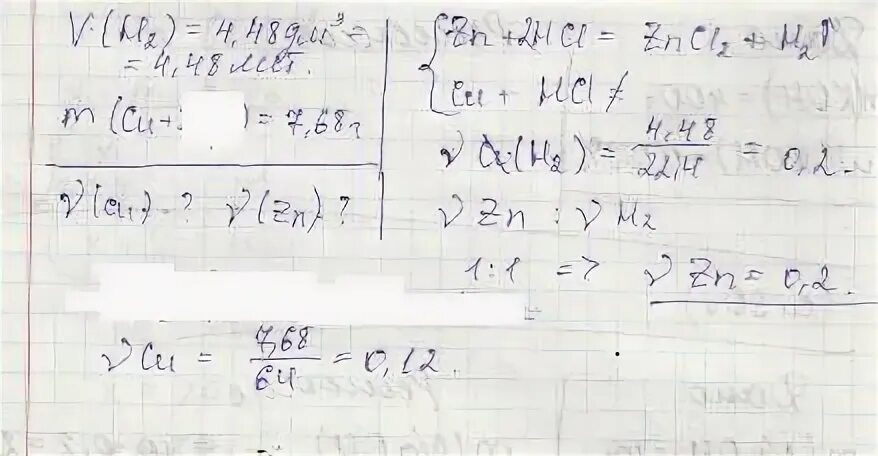 V(H₂) = 4,48 дм³ =
= 4,48 лит.
m (Cu + ) = 7,68 г
ν(Cu) - ? ν(Zn) - ?
Zn + 2HCl = ZnCl₂ + H₂↑
Cu + HCl ≠
ν (H₂) = 4,48 / 22,4 = 0,2
ν Zn : ν H₂
1 : 1 => ν Zn = 0,2.
ν Cu = 7,68 / 64 = 0,12.